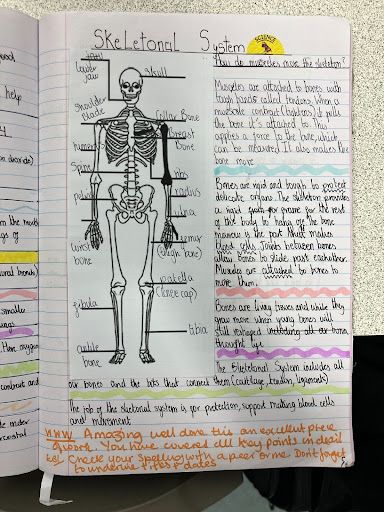 Skeletonal System
SCIENCE
How do muscles move the skeleton?
lower
jaw
skull
Shoulder
Blade
Collar Bone
Breast
Bone
humerus
Spine
ribs
radius
pelvis
ulna
femur
(thigh bone)
wrist
bone
patella
(knee cap)
fibula
tibia
ankle
bone
Muscles are attached to bones with
tough bands called tendons. When a
muscle contract (tightens) it pulls
the bone it's attached to. This
applies a force to the bone, which
can be measured. It also makes the
bone move
Bones are rigid and tough to protect
delicate organs. The skeleton provides
a rigid frame for the rest of
the body to hang off the bone
marrow is the part that makes
blood cells. Joints between bones
allow bones to slide past eachother.
Muscles are attached to bones to
move them.
Bones are living tissues and while they
you move your bones will
still reshaped
thought life
The Skeletonal System includes all
our bones and the bits that connect them (cartilage, tendon, ligaments)
The job of the skeletonal system is for protection, support making blood cells
and movement
WWW Amazing well done this is an excellent piece
of work. You have covered all key points in detail
EBI Check your spelling with a peer or me. Don't forget
to underline titles & dates
help
from the mouth
smaller
contract and